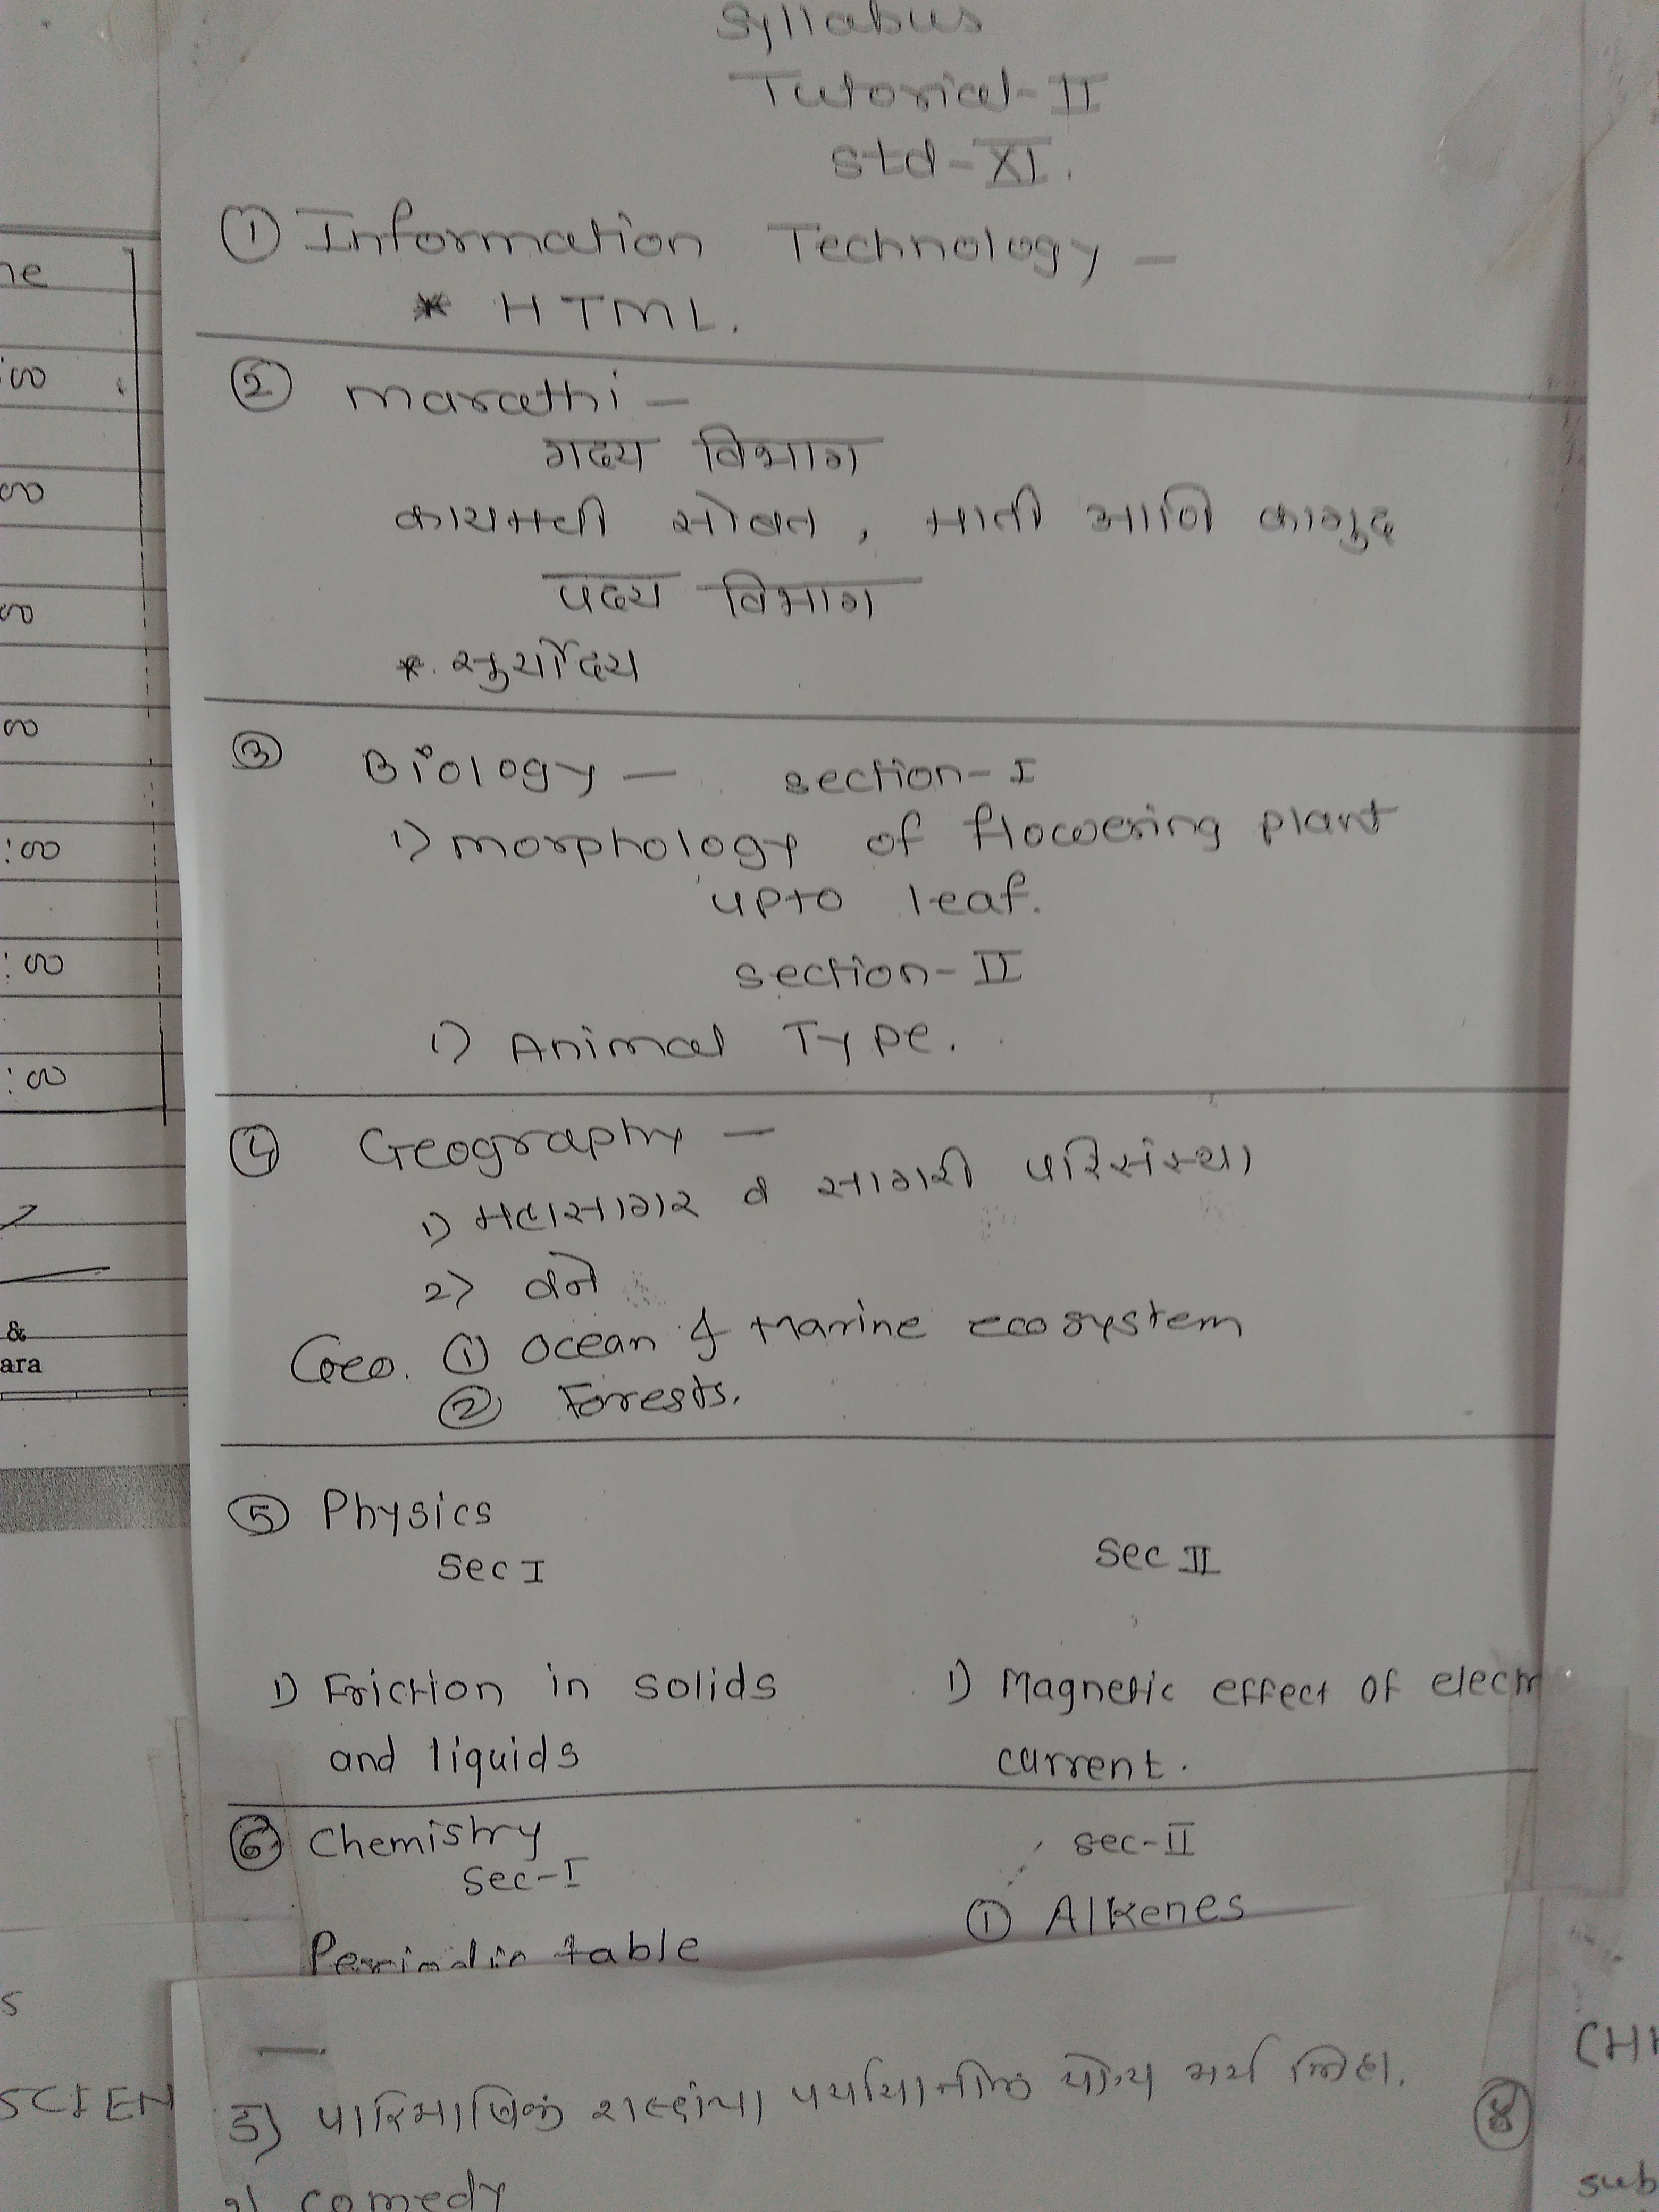 Syllabus
Tutorial-II
std-XI.
① Information Technology -
* HTML.
② Marathi -
गद्य विभाग
कायमची सोबत, माती आणि कागुद
पद्य विभाग
* सुर्योदय
③ Biology - section-I
1) Morphology of flowering plant
upto leaf.
section-II
1) Animal Type.
④ Geography -
1) महासागर व सागरी परिसंस्था
2) वने
Geo. ① Ocean & Marine ecosystem
② Forests.
⑤ Physics
Sec I
Sec II
1) Friction in solids
and liquids
1) Magnetic effect of electr
current.
⑥ Chemistry
Sec-I
sec-II
① Alkenes
Periodic table
इ) पारिभाषिक शब्दांचा पर्यायातील योग्य अर्थ लिहा.
comedy
ne
:00
00
00
00
:00
:00
:00
&
ara
s
SCIEN
⑧
(HI
sub